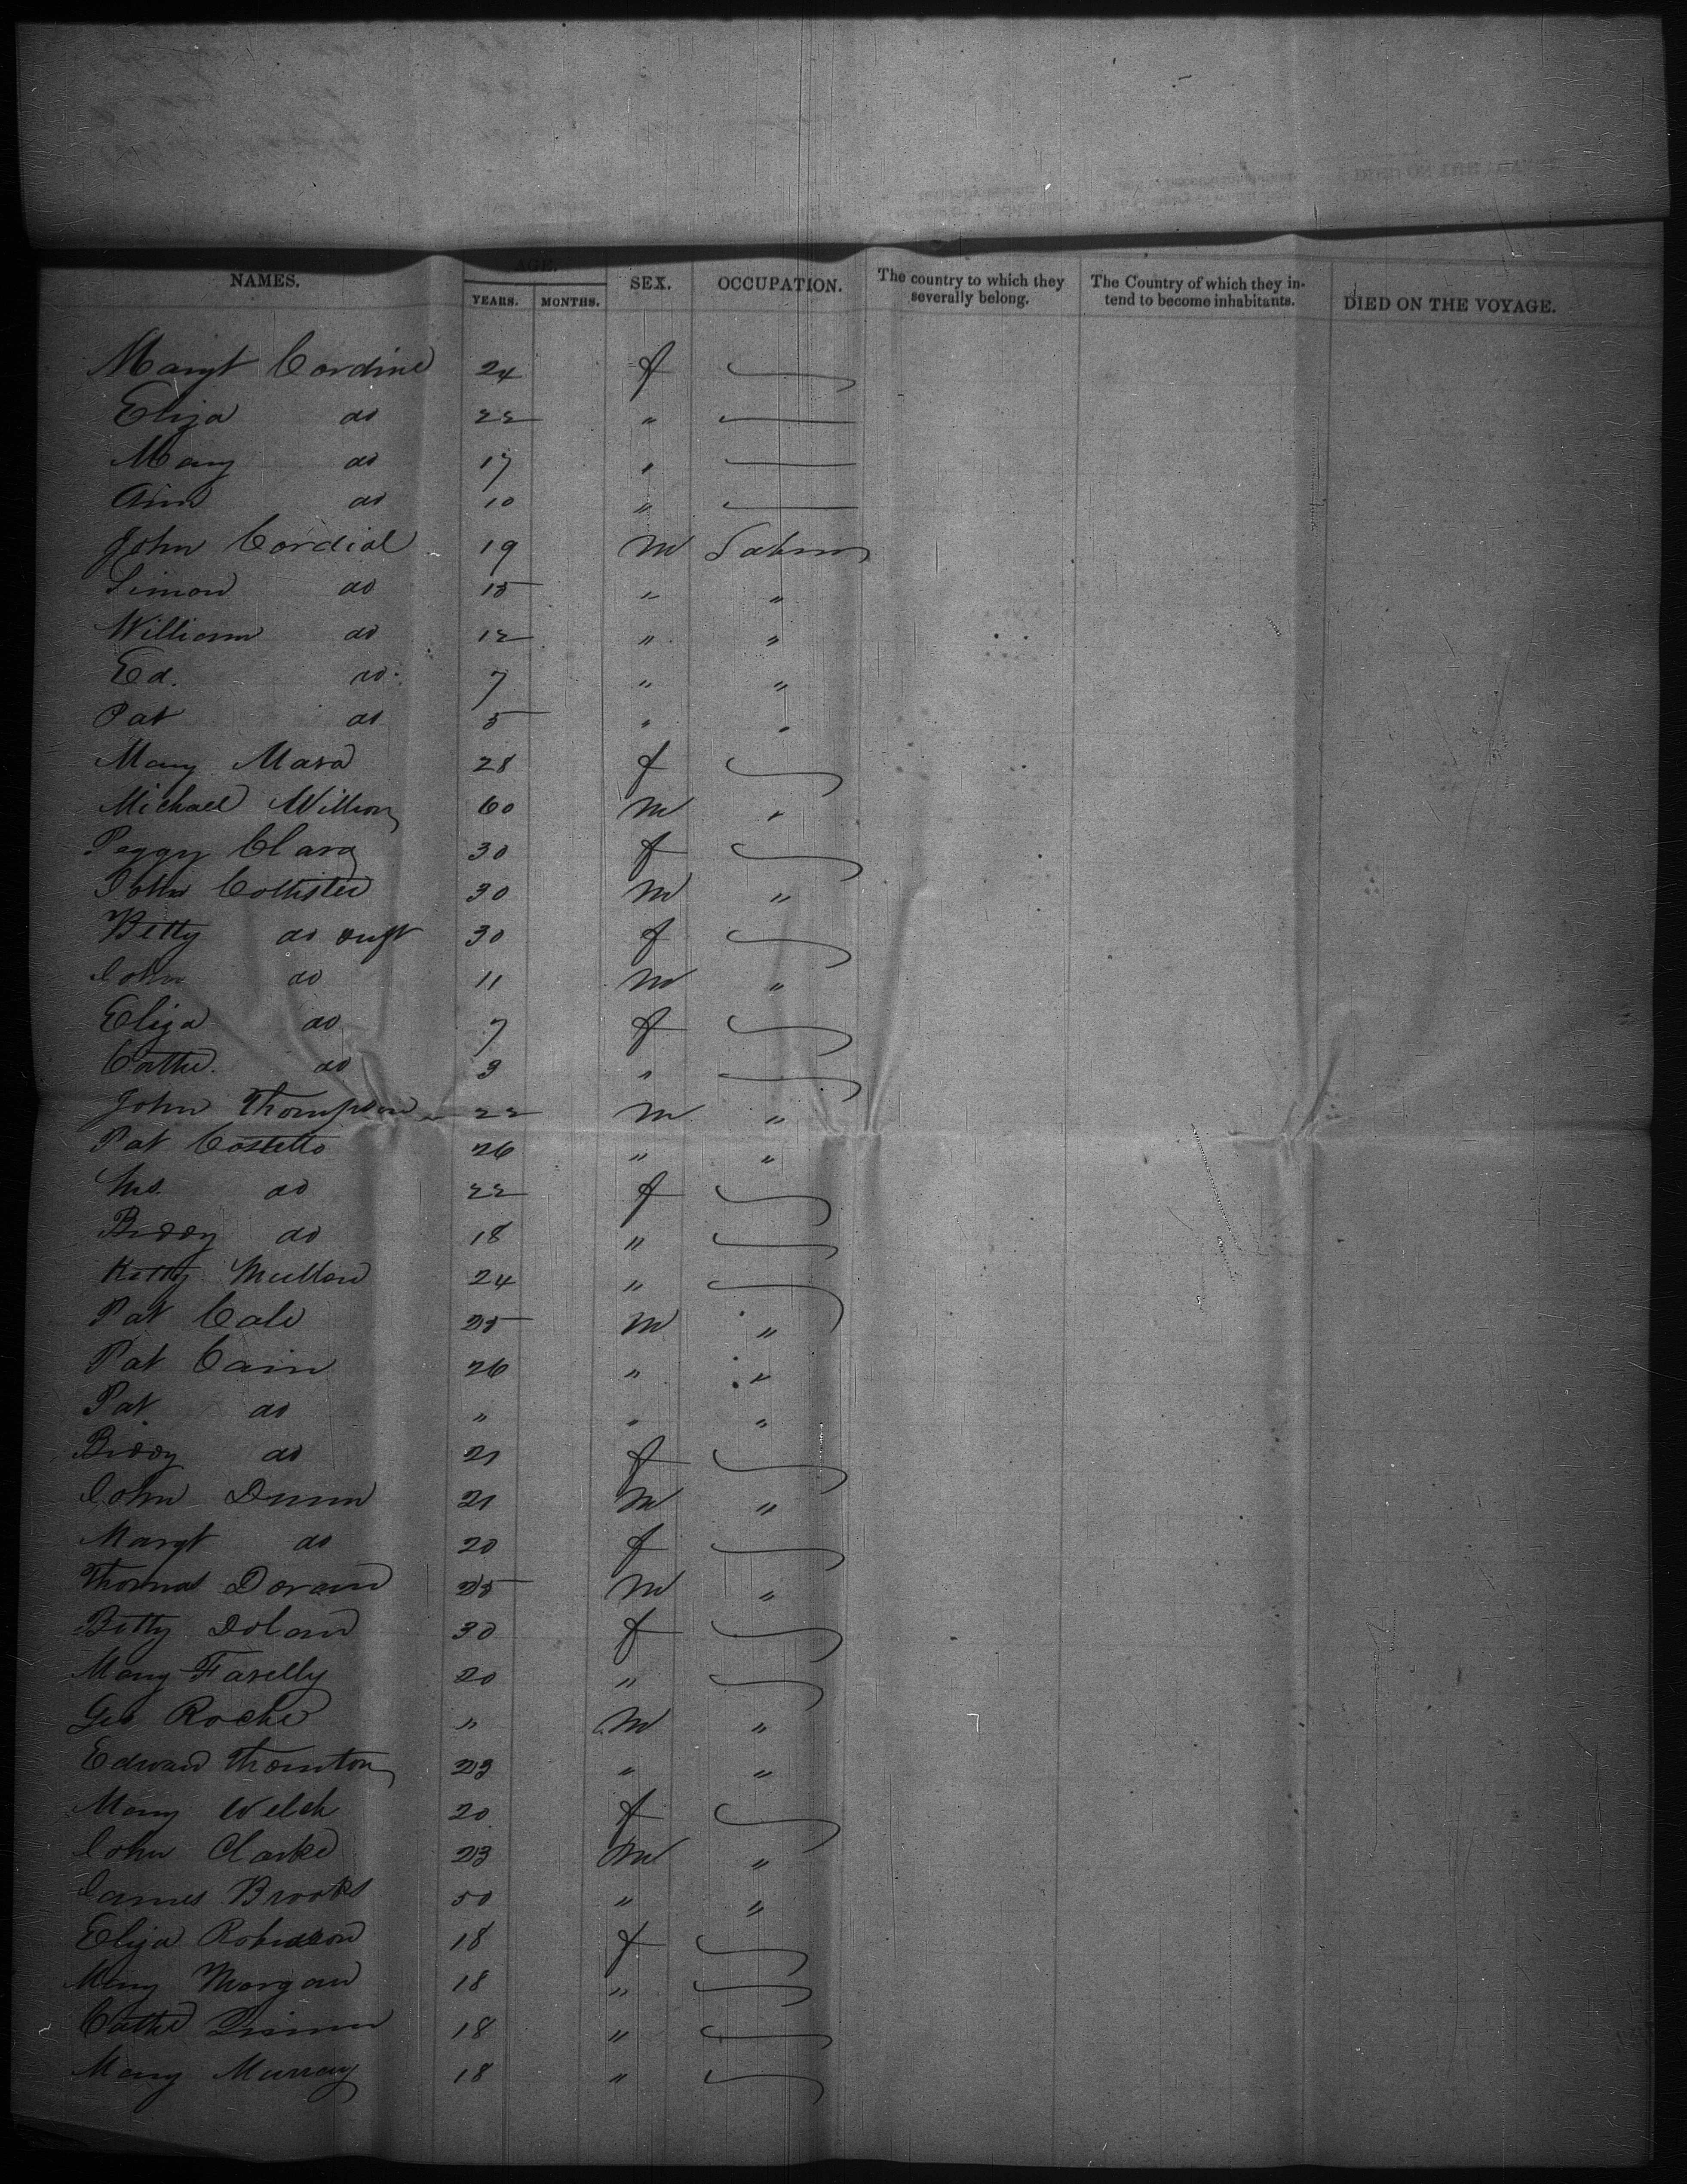 NAMES. AGE. YEARS. MONTHS. SEX. OCCUPATION. The country to which they severally belong. The Country of which they in-tend to become inhabitants. DIED ON THE VOYAGE.
Margt Cordial 24 f
Eliza do 22 "
Mary do 17 "
Ann do 10 "
John Cordial 19 M Labour
Simon do 15 " "
William do 12 " "
Ed. do 7 " "
Pat do 5 " "
Mary Mara 28 f
Michael 60 M "
Peggy 30 f
John Collister 30 M "
Betty do 30 f
John do 11 M "
Eliza do 7 f
Cathe. do 3 "
John Thompson 22 M "
Pat Costello 26 " "
Mrs. do 22 f
Biddy do 18 "
Kitty Mullen 24 "
Pat 25 M "
Pat Cain 26 " "
Pat do " " "
Biddy do 21 f
John Dunn 21 M "
Margt do 20 f
Thomas Doran 25 M "
Betty Dolan 30 f
Mary Farelly 20 "
Geo Roche " M "
Edward Thornton 23 " "
Mary Welch 20 f
John Clarke 23 M "
James Brooks 50 " "
Eliza Robinson 18 f
Mary Morgan 18 "
Cathe 18 "
Mary Murray 18 "